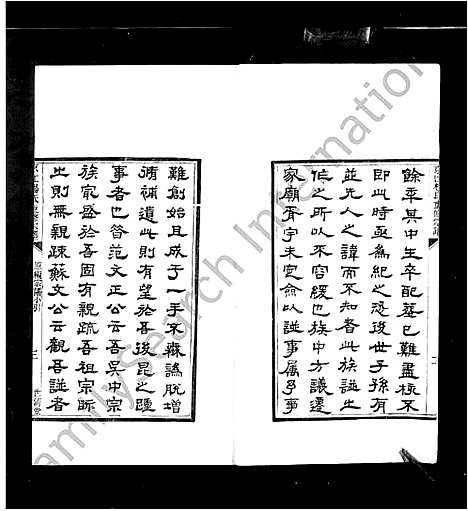 餘年其中生卒配墓已難盡稼不
即此時亟為紀之恐後世子孫有
並先人之諱而不知者此族譜生
修之所以不容緩也族中方議遷
家廟有宇未定僉以譜事屬予事
難創始且成于一手不無譌脫增
補遺此則有望於吾後昆之踵
事者也昔范文正公云吾吳中宗
族甚盛於吾固有親疏吾祖宗眎
之則無親疎蘇文公云觀吾譜者
二
三
FamilySearch International